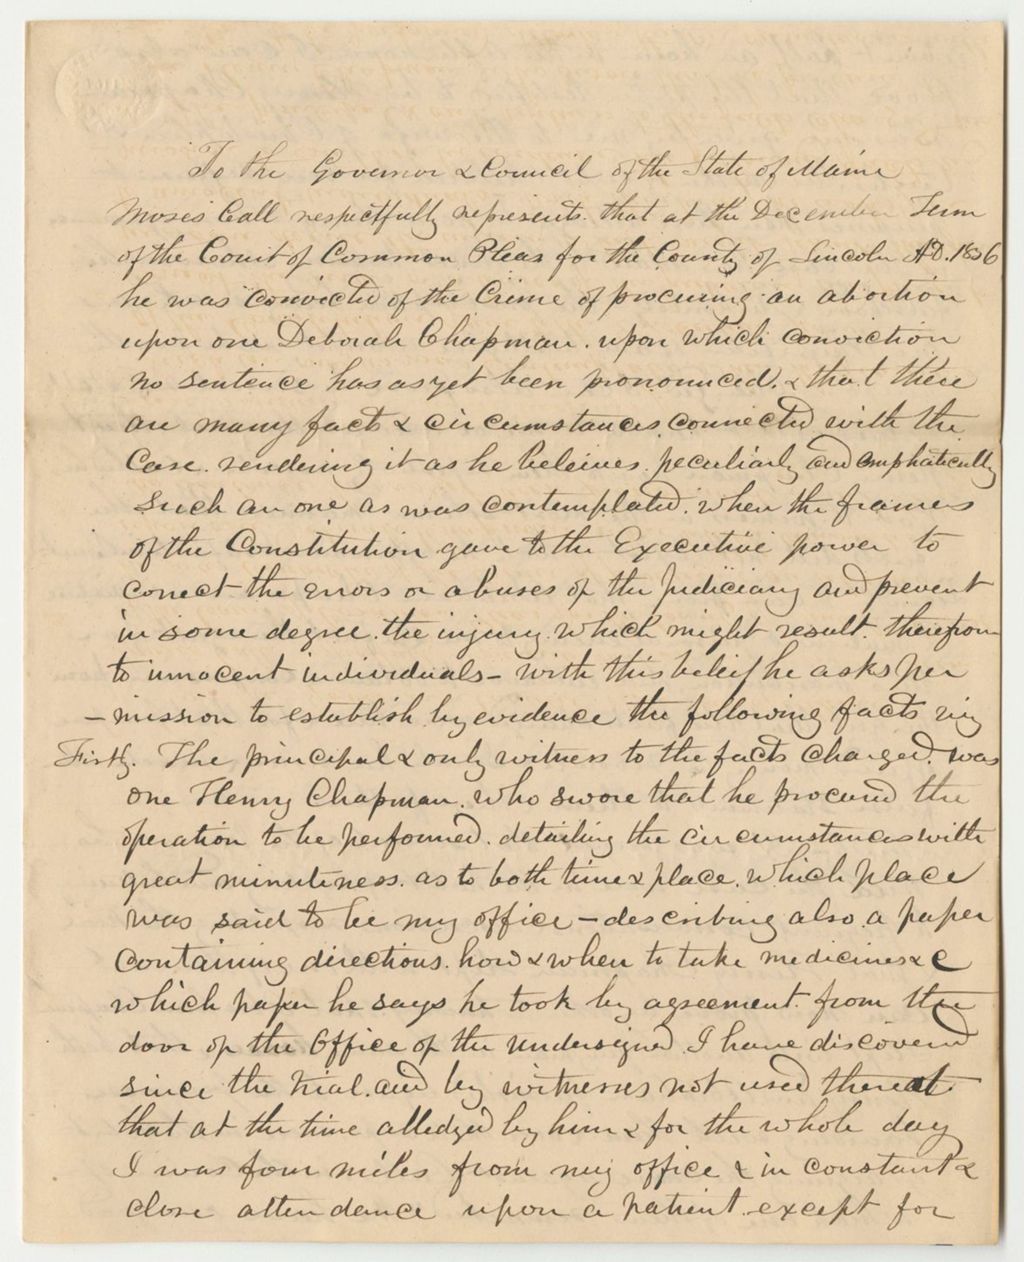 To the Governor & Council of the State of Maine
Moses Call respectfully represents. that at the December Term
of the Court of Common Pleas for the County of Lincoln AD. 1836
he was convicted of the Crime of procuring an abortion
upon one Deborah Chapman. upon which conviction
no sentence has as yet been pronounced. & that there
are many facts & circumstances connected with the
Case. rendering it as he beleives. peculiarly and emphatically
such an one as was contemplated. when the framers
of the Constitution gave to the Executive power to
correct the errors or abuses of the Judiciary and prevent
in some degree. the injury. which might result. therefrom
to innocent individuals - with this beleif he asks per
- mission to establish by evidence the following facts viz
Firstly. The principal & only witness to the facts charged. was
one Henry Chapman. who swore that he procured the
operation to be performed. detailing the circumstances with
great minuteness. as to both time & place. which place
was said to be my office - describing also a paper
containing directions. how & when to take medicines &c
which paper he says he took by agreement from the
door of the Office of the undersigned I have discovered
since the trial. and by witnesses not used thereat
that at the time alledged by him & for the whole day
I was four miles from my office & in constant &
close attendance upon a patient. except for